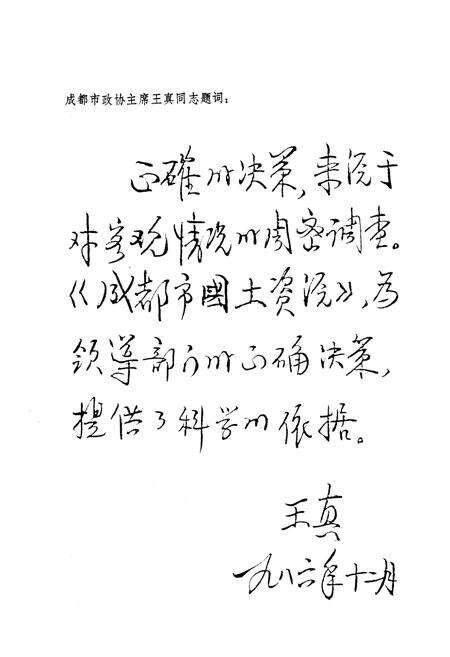 成都市政协主席王真同志题词：
正確的决策，来源于
对客观情况的周密调查。
《成都市國土資源》，为
领导部门的正确决策，
提供了科学的依据。
王真
一九八六年十二月